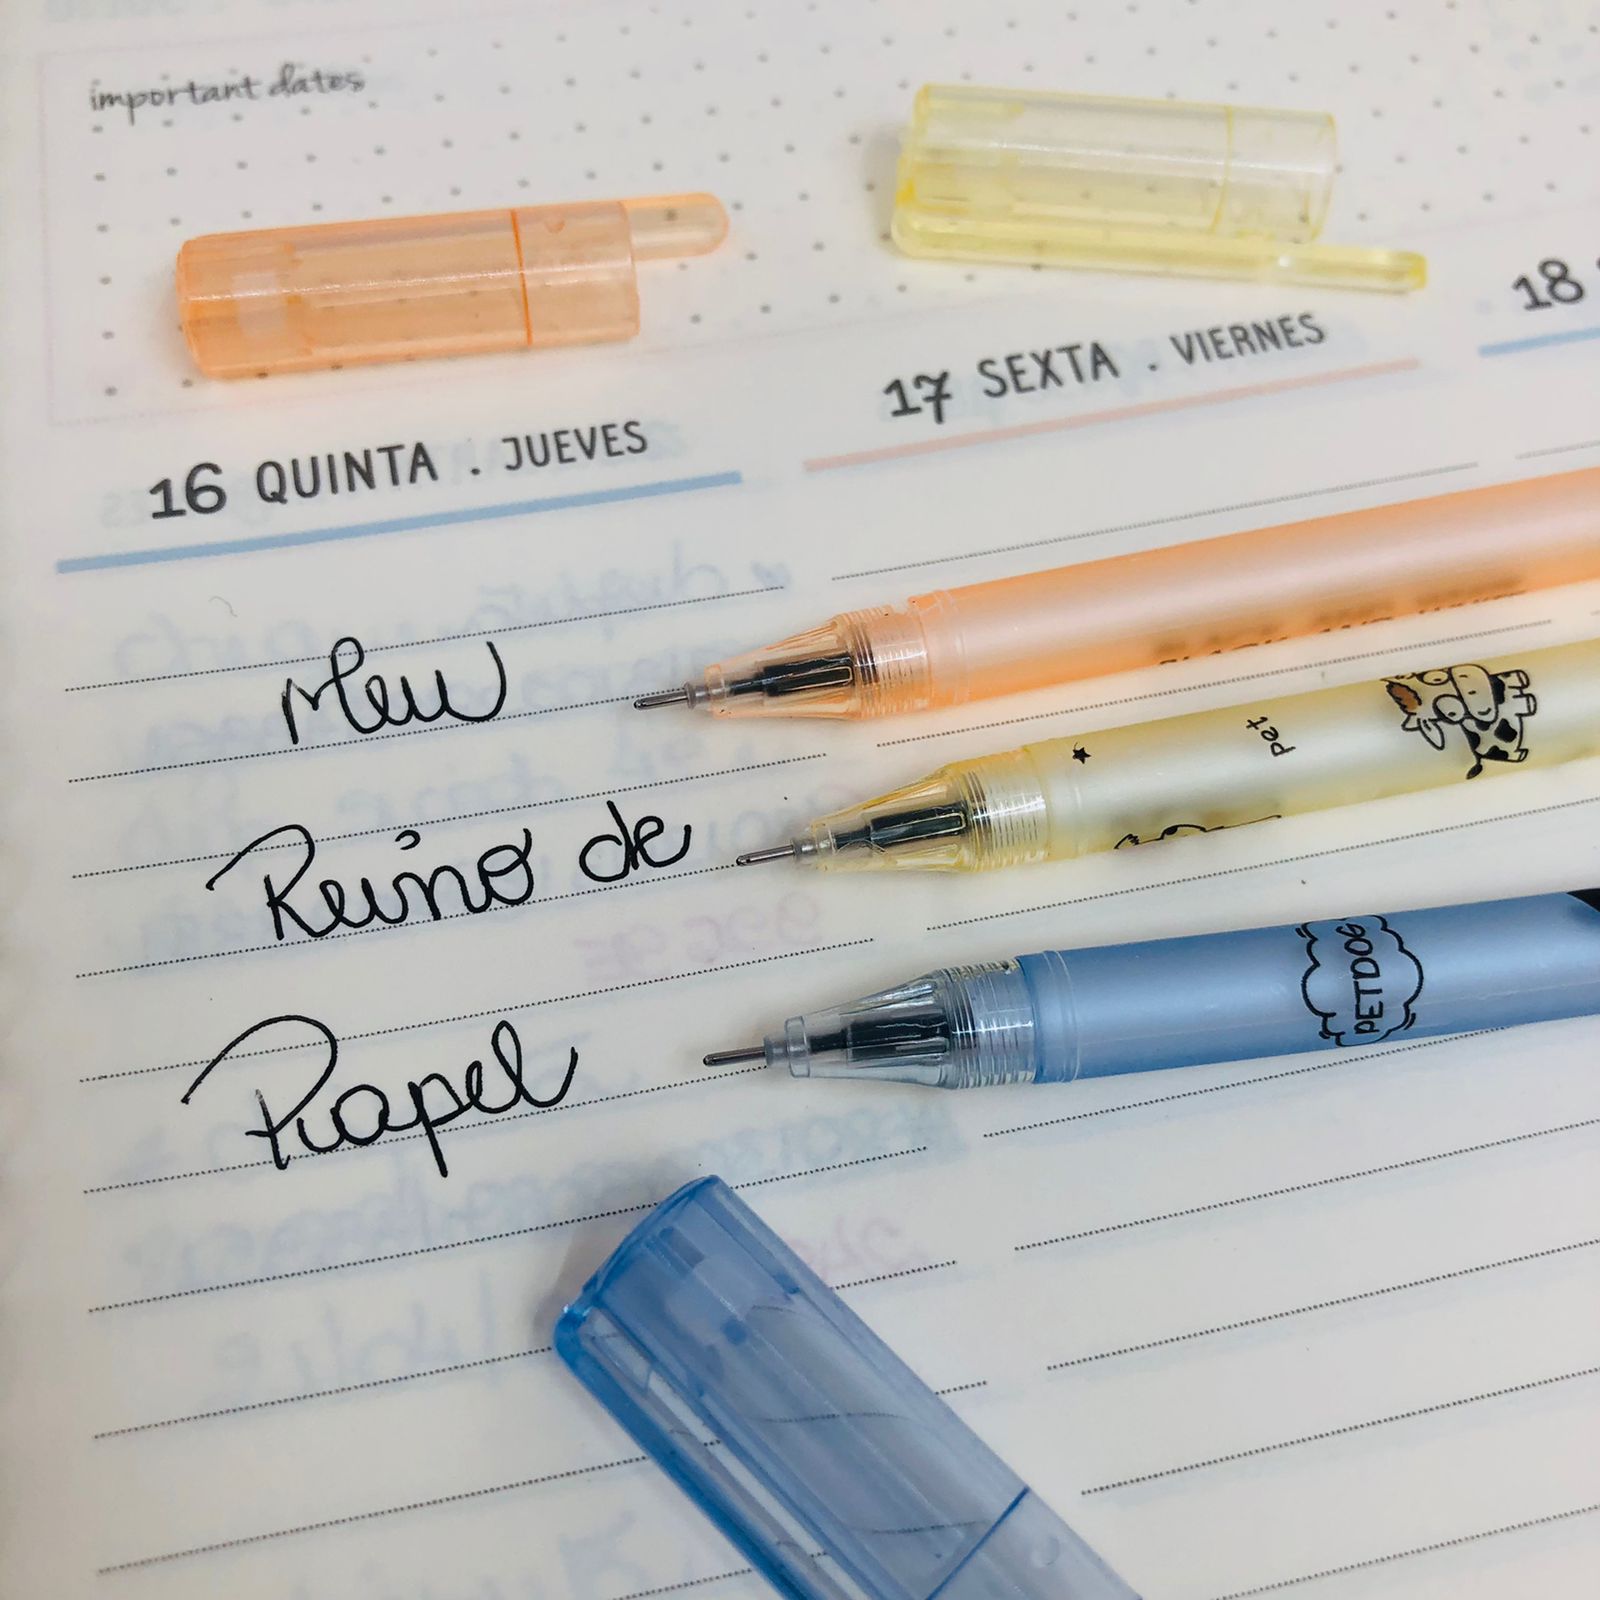 important dates
16 QUINTA . JUEVES
17 SEXTA . VIERNES
18
Meu
Reino de
Papel
Pet
PETDOG